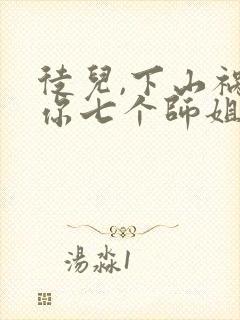 徒兒,下山禍
你七个師姐
湯淼1